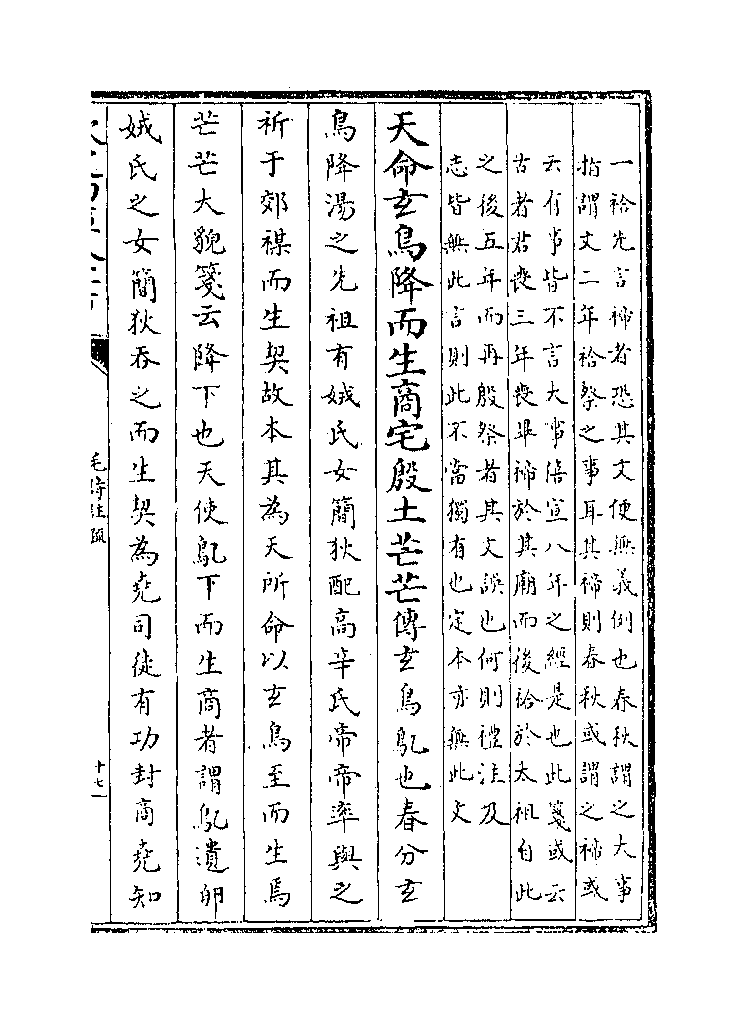 一祫先言禘者恐其文便無義例也春秋謂之大事
指謂文二年祫祭之事耳其禘則春秋或謂之禘或
云有事皆不言大事僖宣八年之經是也此箋或云
古者君喪三年喪畢禘於其廟而後祫於太祖自此
之後五年而再殷祭者其文誤也何則禮注及
志皆無此言則此不當獨有也定本亦無此文
天命玄鳥降而生商宅殷土芒芒傳玄鳥鳦也春分玄
鳥降湯之先祖有娀氏女簡狄配高辛氏帝帝率與之
祈于郊禖而生契故本其為天所命以玄鳥至而生焉
芒芒大貌箋云降下也天使鳦下而生商者謂鳦遺卵
娀氏之女簡狄吞之而生契為堯司徒有功封商堯知
毛詩註疏
十七